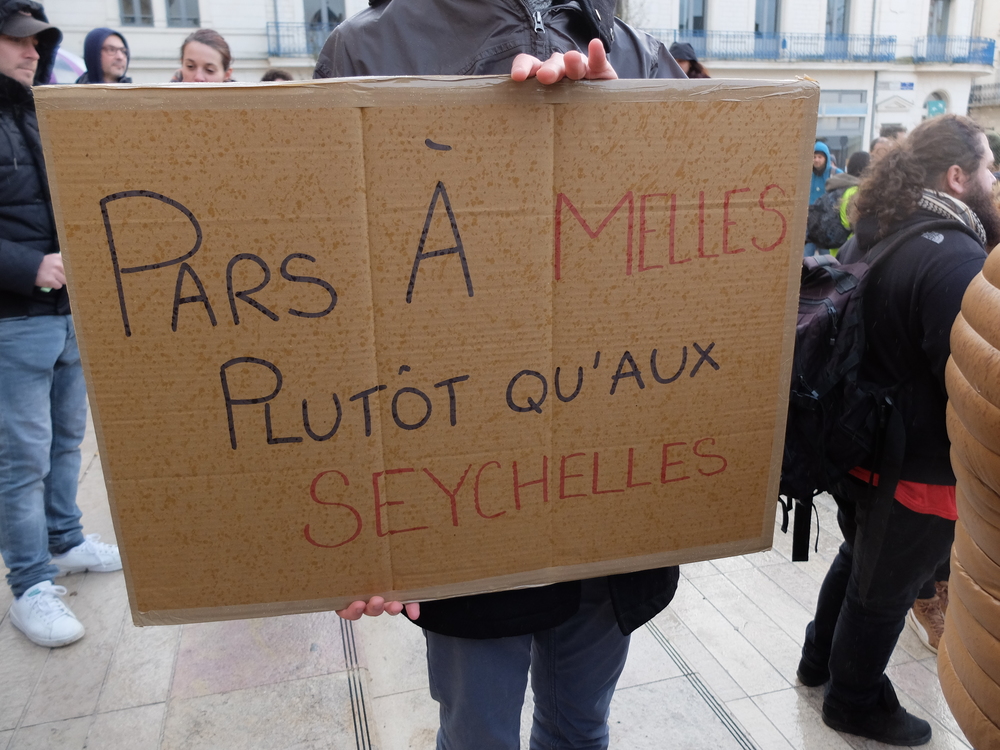 PARS À MELLES
PLUTÔT QU'AUX
SEYCHELLES